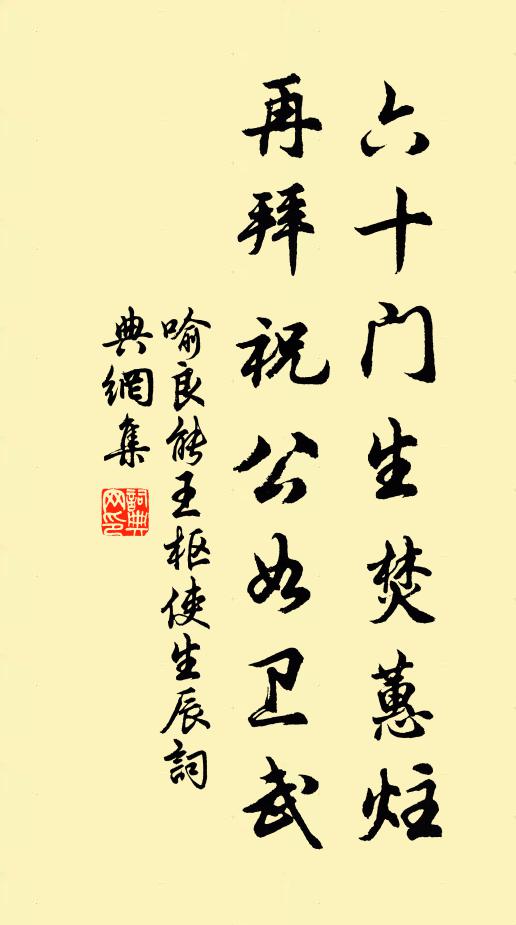 六十门生焚蕙炷
再拜祝公如卫武
喻良能王枢使生辰詞
典網集
詞典网印